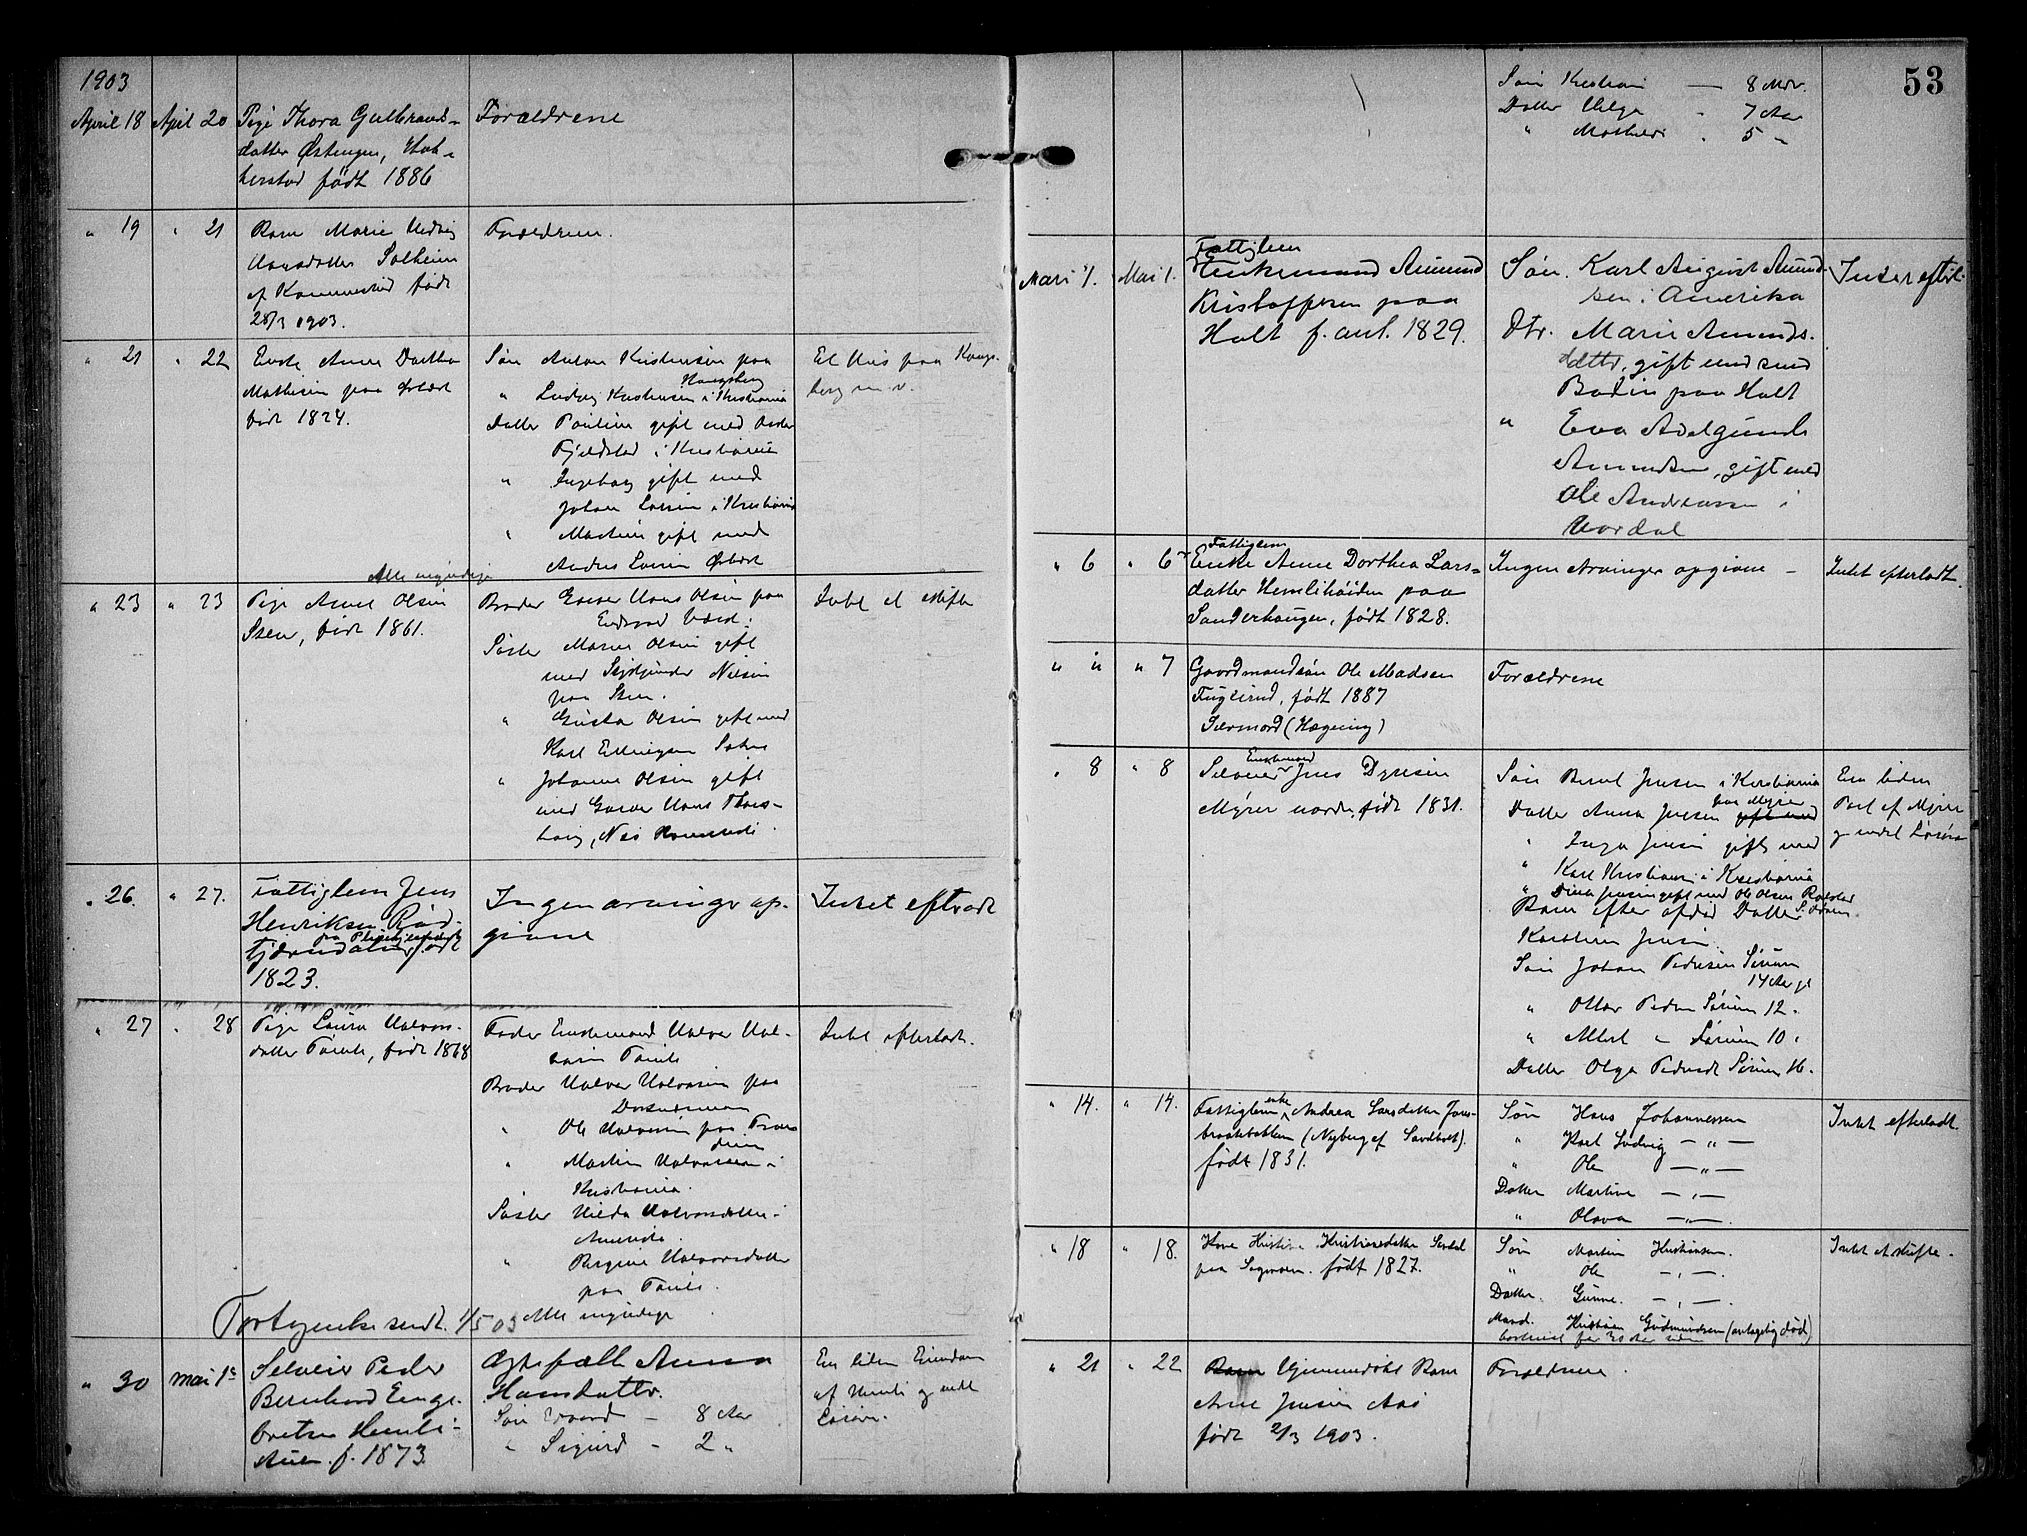 1903
April 18 April 20 Pige Thora Gulbrands- Forældrene
datter Østengen,
født 1886
" 19 " 21 Barn Marie Hedvig Forældrene.
Hansdatter Solheim
af født
28/3 1903.
" 21 " 22 Enke Anne Dorthea Søn Anton Kristensen paa Et Hus paa Kongs-
Mathisen paa Kongsberg berg m. v.
født 1824. " Ludvig Kristensen i Kristiania
Datter Pauline gift med Peder
Fjeldstad i Kristiania
" Ingeborg gift med
Johan Larsen i Kristiania
" Martine gift med
Anders Larsen
Alle myndige
" 23 " 23 Pige Anne Olsen Broder Gaardbr Hans Olsen paa Intet at skifte
Steen, født 1861.
Søster Maren Olsen gift
med Nilsen
paa Steen.
" Gusta Olsen gift med
Karl Ellingsen
" Johanne Olsen gift
med Gaardbr Hans Thors-
berg, Nes
" 26. " 27. Fattiglem Jens Ingen arvinger op- Intet efterladt
Henriksen Rød- givne
tjernsdalen, født
1823.
" 27 " 28 Pige Laura Halvors- Fader Enkemand Halvor Hal- Intet efterladt.
datter født 1868
Broder Halvor Halvorsen paa
" Ole Halvorsen paa
" Martin Halvorsen i
Kristiania.
Søster Hilda Halvorsdatter i
Amerika.
" Bergine Halvorsdatter
paa
Alle myndige
Fortegnelse sendt 1/5 03
" 30 Mai 1ste Selveier Peder Ægtefælle Anna En liden Eiendom
Bernhard Enge- Hansdatter. af Hemli og endel
bretsen Hemli- Søn – 8 Aar Løsøre.
f. 1873. " Sigurd – 2 "
53
Søn Kristian — 8 Mdr.
Datter Helga " 7 Aar
" Mathilde " 5 "
Fattiglem
Mai 1. Mai 1. Enkemand Amund Søn Karl August Amund- Intet efterl.
Kristoffersen paa sen i Amerika
Holt f. ant. 1829. Dtr. Marie Amunds-
datter, gift med smed
Bodin paa Holt
" Eva Adelgunde
Amundsen, gift med
Ole Andreassen i
Hordal
Fattiglem
" 6 " 6 Enke Anne Dorthea Lars- Ingen Arvinger opgivne – Intet efterladt.
datter Hemlihøiden paa
Sanderhaugen, født 1828.
" " " 7 Gaardmandssøn Ole Madsen Forældrene
Fuglerud, født 1887
Selvmord (Hængning)
Enkemand
" 8 " 8 Selveier Jens Dyresen Søn Bernt Jensen i Kristiania En liden
Myrer nordre, født 1831. Datter Anna Jensen paa Myrer gift med Part af Myrer
" Inga Jensen gift med og endel Løsøre
Karl Kristiansen i Kristiania
" Dina Jensen gift med Ole Olsen
Børn efter afdød Datter
Karoline Jensen
Søn Johan Pedersen Sørum
14 Aar gl
" Ottar Peder Sørum 12.
" Albert " Sørum 10.
Datter Olga Pedersdt Sørum 16.
" 14. " 14. Fattiglem enke Andrea Larsdatter Søn Hans Johannessen Intet efterladt.
(Nyberg af Sandbæk). " Karl Ludvig — " —
født 1831. " Ole — " —
Datter Martine — " —
" Olava — " —
" 18 " 18. Kone Kristine Kristiansdatter Søn Martin Kristiansen. Intet at skifte.
født 1827. " Ole — " —
Datter. Gunne. — " —
Mand. Kristian Gudmundsen (antagelig død)
" 21 " 22 Barn Hjemmedøbt Barn Forældrene.
Arne Jensen Aas
født 2/3 1903.